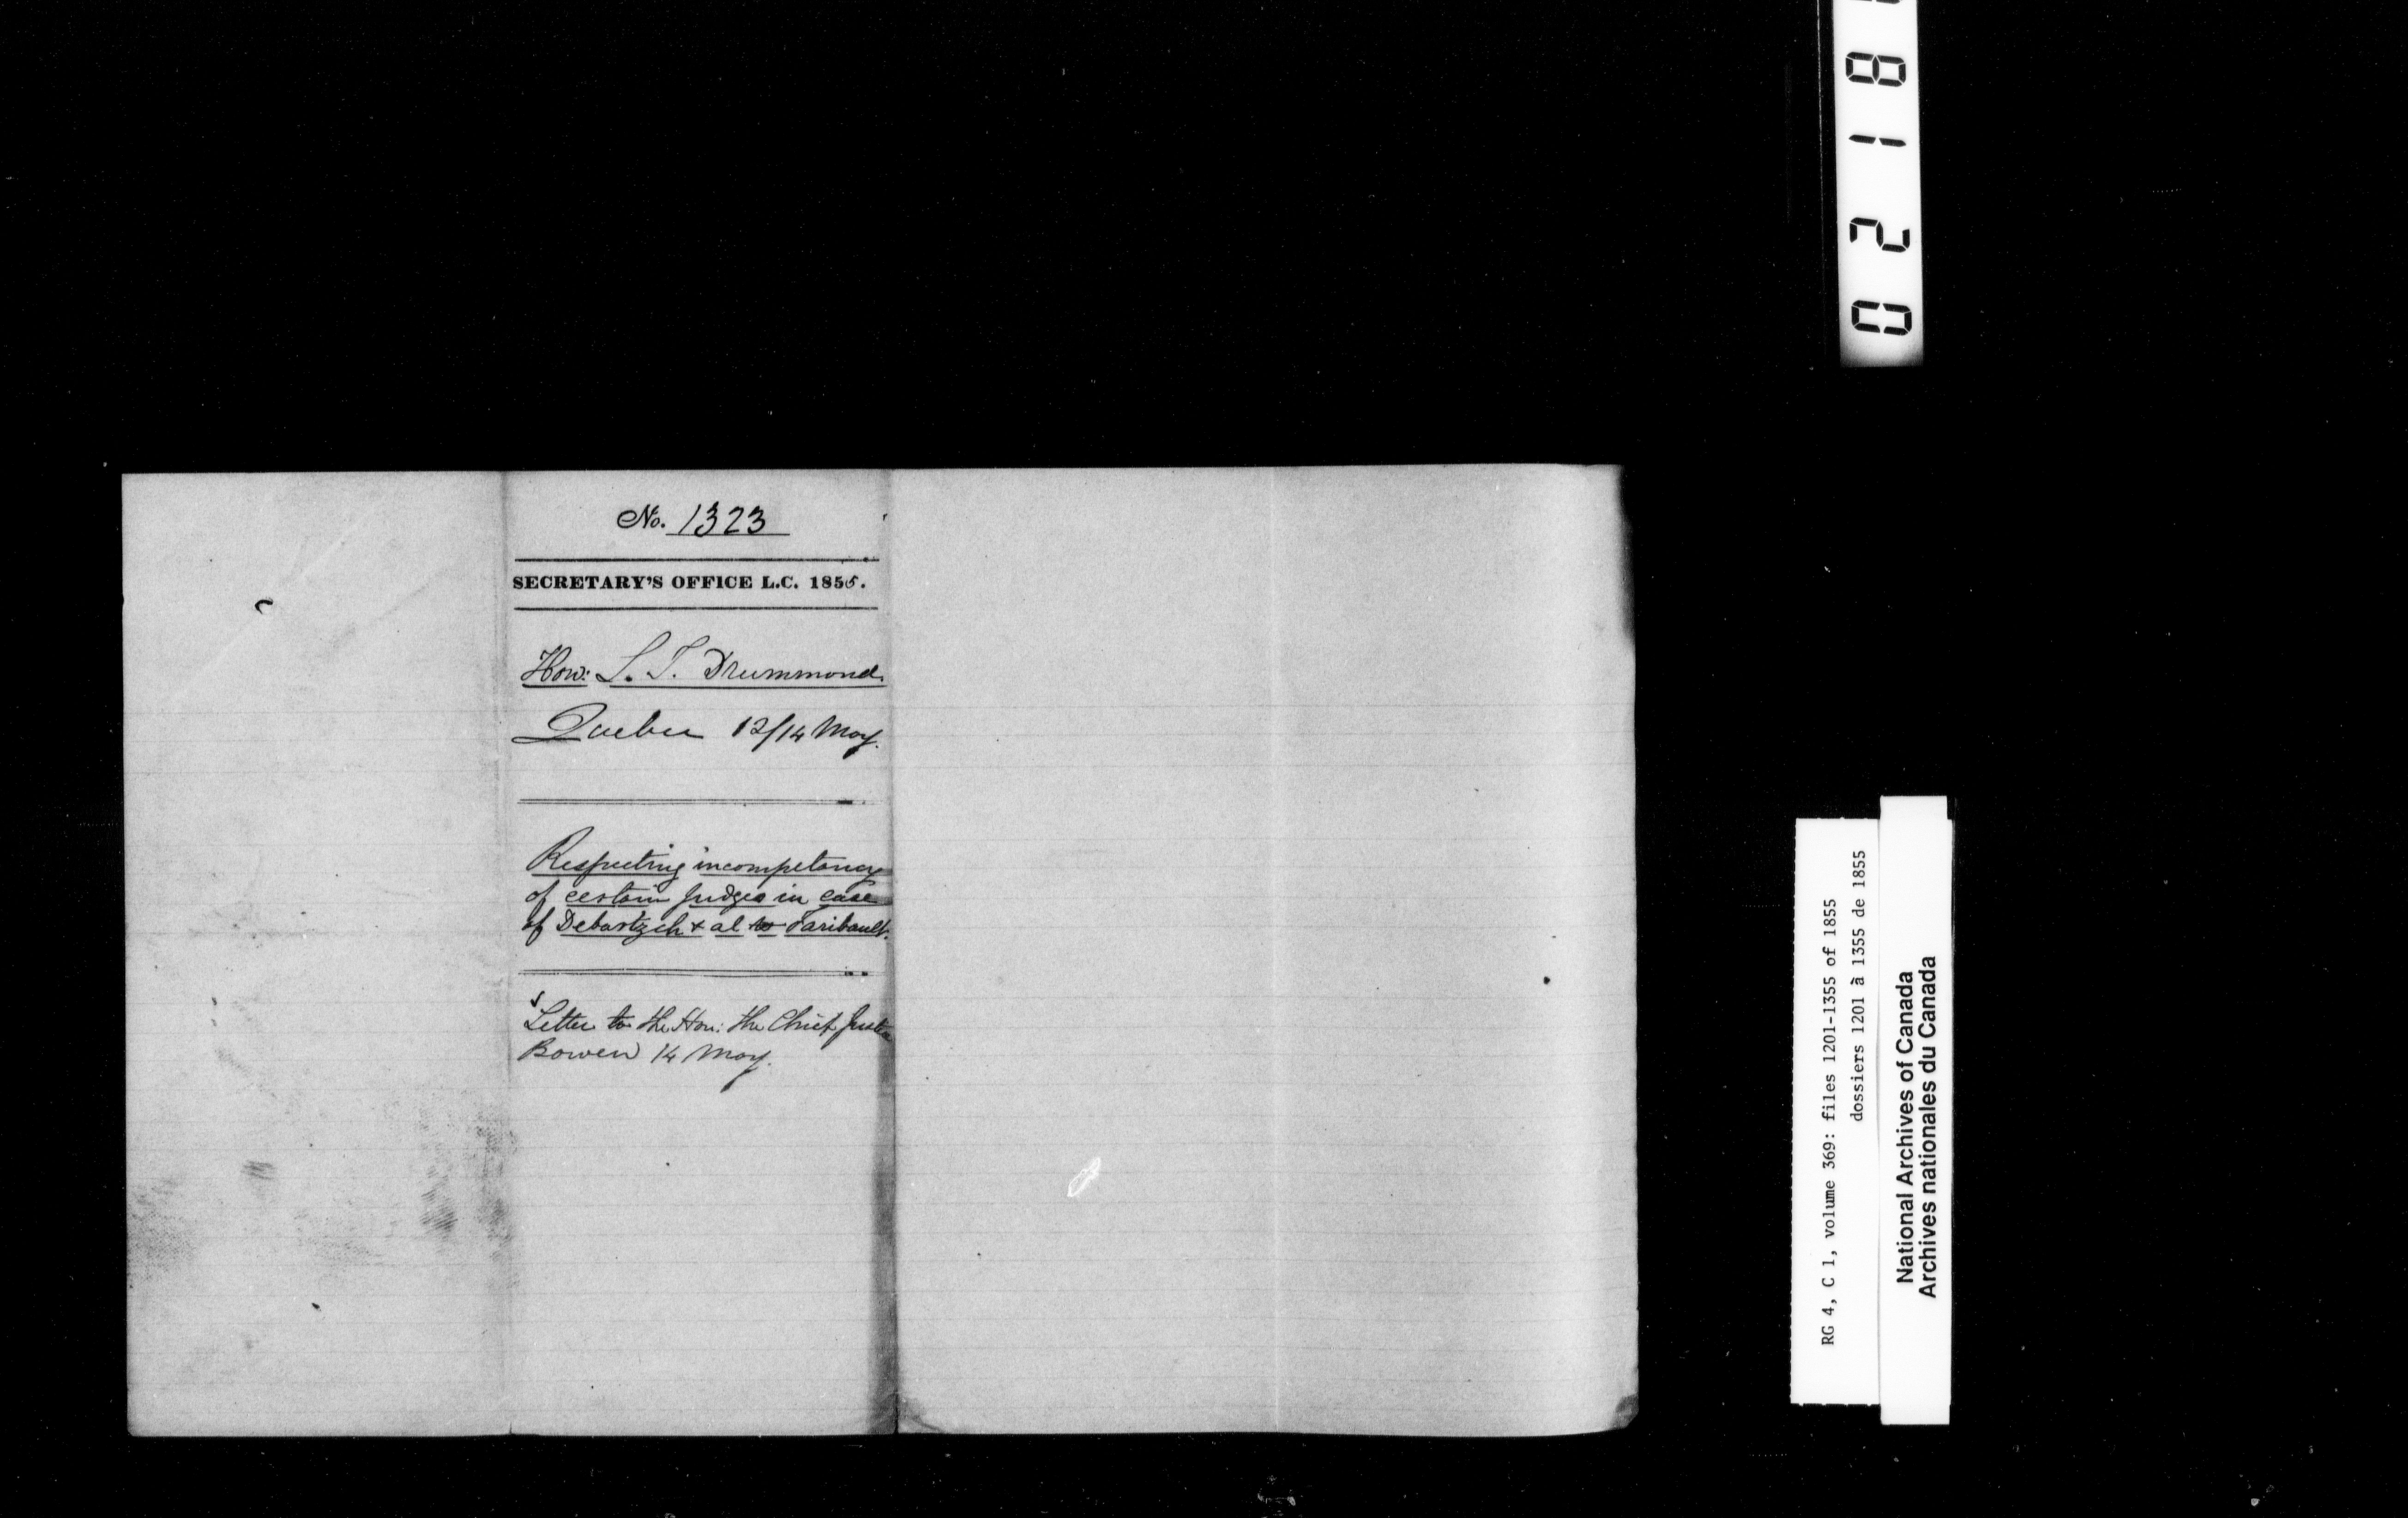 No. 1323
SECRETARY'S OFFICE L.C. 1855.
Hon: L. T. Drummond.
Quebec 12/14 May.
Respecting incompetency
of certain Judges in case
of Debartzch & al vs Faribault.
Letter to the Hon: the Chief Justice
Bowen 14 May.
0 2 1 8
RG 4, C 1, volume 369: files 1201-1355 of 1855
dossiers 1201 à 1355 de 1855
National Archives of Canada
Archives nationales du Canada